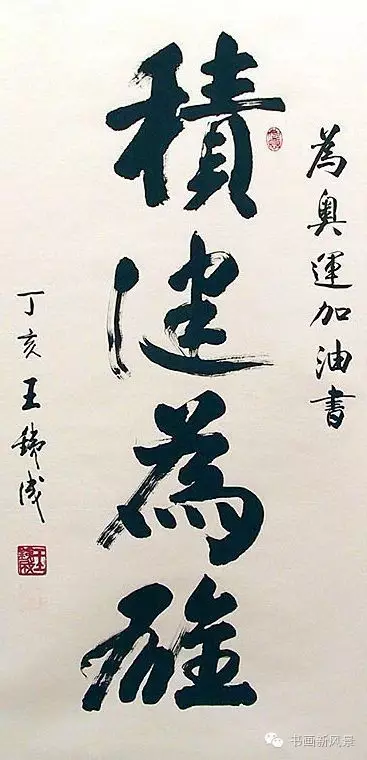 為奧運加油書
積健為雄
丁亥王銕成
书画新风景